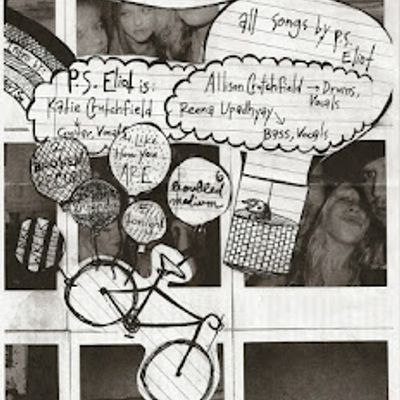 all songs by P.S.
Eliot
P.S. Eliot is:
Katie Crutchfield
Guitar, Vocals
Allison Crutchfield → Drums,
Vocals
Reena Upadhyay
Bass, Vocals
I Like
How You
ARE
troubled
medium
6
tonight